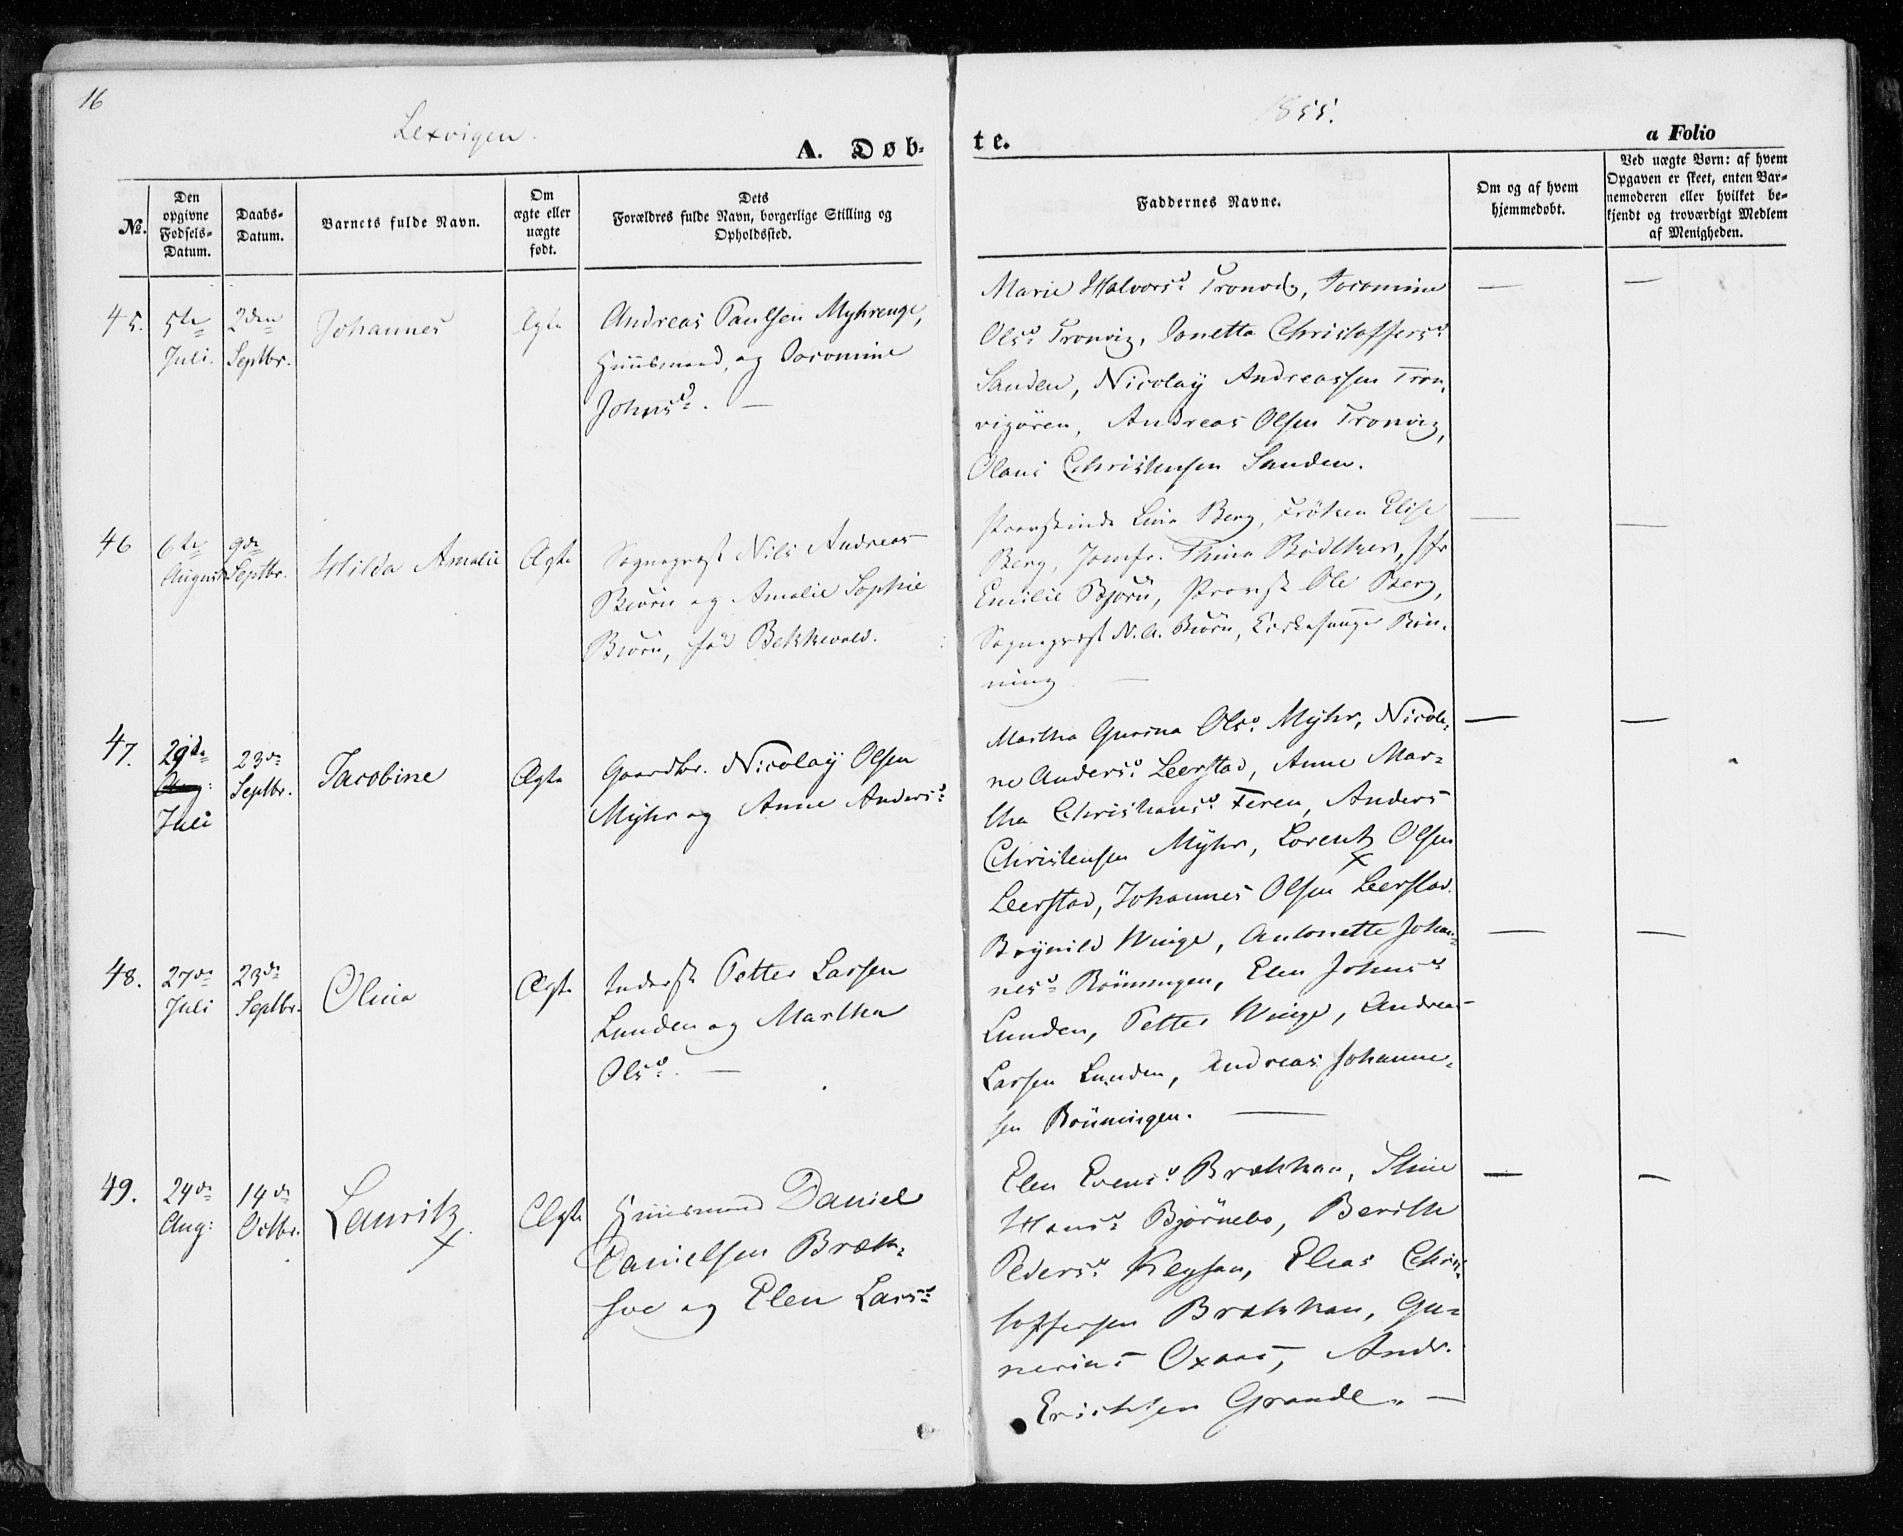 16
Lexvigen.
1855.
A. Døb-
te.
a Folio
№.
Den
opgivne
Fødsels-
Datum.
Daabs-
Datum.
Barnets fulde Navn.
Om
ægte eller
uægte
født.
Dets
Forældres fulde Navn, borgerlige Stilling og
Opholdssted.
Faddernes Navne.
Om og af hvem
hjemmedøbt.
Ved uægte Børn: af hvem
Opgaven er skeet, enten Bar-
nemoderen eller hvilket be-
kjendt og troværdigt Medlem
af Menigheden.
45.
5te
Juli.
2den
Septbr.
Johannes
Ægte
Andreas Paulsen Myhrenge,
Huusmand, og Joromine
Johnsd. —
Marie Halvorsd. Tronvig, Joromine
Olsd. Tronvig, Jonetta Christoffersd.
Sanden, Nicolaÿ Andreassen Tron-
vigøren, Andreas Olsen Tronvig,
Olaus Christensen Sanden.
—
—
46
6te
August
9de
Septbr.
Hilda Amalie
Ægte
Sognepræst Nils Andreas
Biörn og Amalie Sophie
Biörn, fød Bekkevold.
Provstinde Lina Berg, Frøken Elise
Berg, Jomfr. Thina Bödtker, Jfr
Emilie Bjørn, Provst Ole Berg,
Sognepræst N. A. Biörn, Kirkesanger Rön-
ning —
—
—
47.
29de
Aug:
Juli
23de
Septbr.
Jacobine
Ægte
Gaardbr. Nicolaÿ Olsen
Mÿhr og Anne Andersd.
Martha Gurina Olsd. Mÿhr, Nicoli-
ne Andersd. Leerstad, Anne Mar-
tha Christiansd. Feren, Anders
Christensen Mÿhr, Lorentz Olsen
Leerstad, Johannes Olsen Leerstad.
—
—
48.
27de
Juli
23de
Septbr.
Olina
Ægte
Inderst Petter Larsen
Lunden og Martha
Olsd. —
Brÿnild Winge, Antonette Johan-
nesd. Rönningen, Elen Johnsd.
Lunden, Petter Winge, Andreas
Larsen Lunden, Andreas Johanne-
sen Rönningen. —
—
—
49.
24de
Aug:
14de
Octbr.
Lauritz
Ægte
Huusmand Daniel
Danielsen Bræk-
hoe og Elen Larsd.
Elen Evensd. Brækkan, Stine
Hansd. Bjørnebo, Berith
Pedersd. Kleysan, Elias Chri-
stoffersen Brækkan, Gu-
nerius Oxaas, Andr.
Erichsen Grande. —
—
—